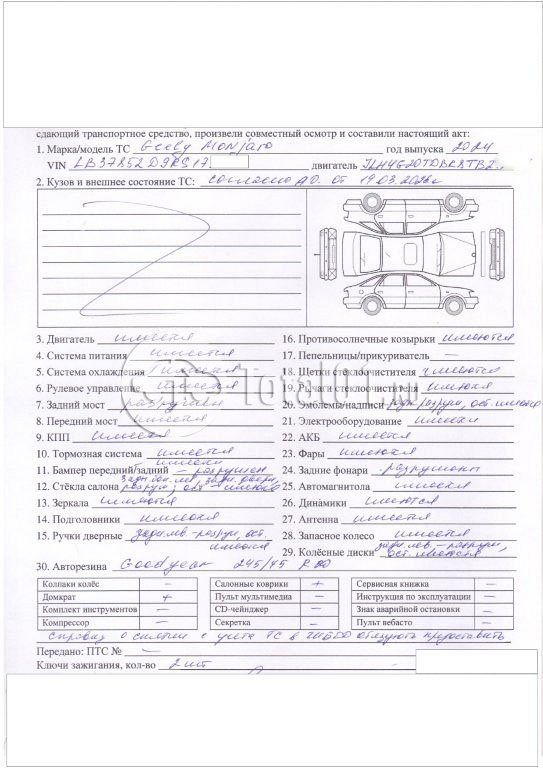 сдающий транспортное средство, произвели совместный осмотр и составили настоящий акт:
1. Марка/модель ТС Geely Monjaro год выпуска 2024
VIN LB37852D9RS17 двигатель JLH4G20TDBRSTB2
2. Кузов и внешнее состояние ТС: согласно АО. от 19.03.2026г
3. Двигатель имеется
4. Система питания имеется
5. Система охлаждения имеется
6. Рулевое управление имеется
7. Задний мост разрушен
8. Передний мост имеется
9. КПП имеется
10. Тормозная система имеется
11. Бампер передний/задний имеется - разрушен
12. Стёкла салона задн. лев, задн. двери, разруш, ост - имеются
13. Зеркала имеются
14. Подголовники имеются
15. Ручки дверные задн. лев. - разруш, ост. имеются
16. Противосолнечные козырьки имеются
17. Пепельницы/прикуриватель –
18. Щетки стеклоочистителя имеются
19. Рычаги стеклоочистителя имеются
20. Эмблемы/надписи разруш, ост. имеются
21. Электрооборудование имеется
22. АКБ имеется
23. Фары имеются
24. Задние фонари разрушены
25. Автомагнитола имеется
26. Динамики имеются
27. Антенна имеется
28. Запасное колесо имеется
29. Колёсные диски задн. лев. - разруш, ост. имеются
30. Авторезина Goodyear 245/45 R20
Колпаки колёс – Салонные коврики + Сервисная книжка –
Домкрат + Пульт мультимедиа – Инструкция по эксплуатации –
Комплект инструментов – CD-чейнджер – Знак аварийной остановки –
Компрессор – Секретка – Пульт вебасто –
справку о снятии с учета ТС в ГИБДД обязуюсь предоставить
Передано: ПТС № –
Ключи зажигания, кол-во 2 шт